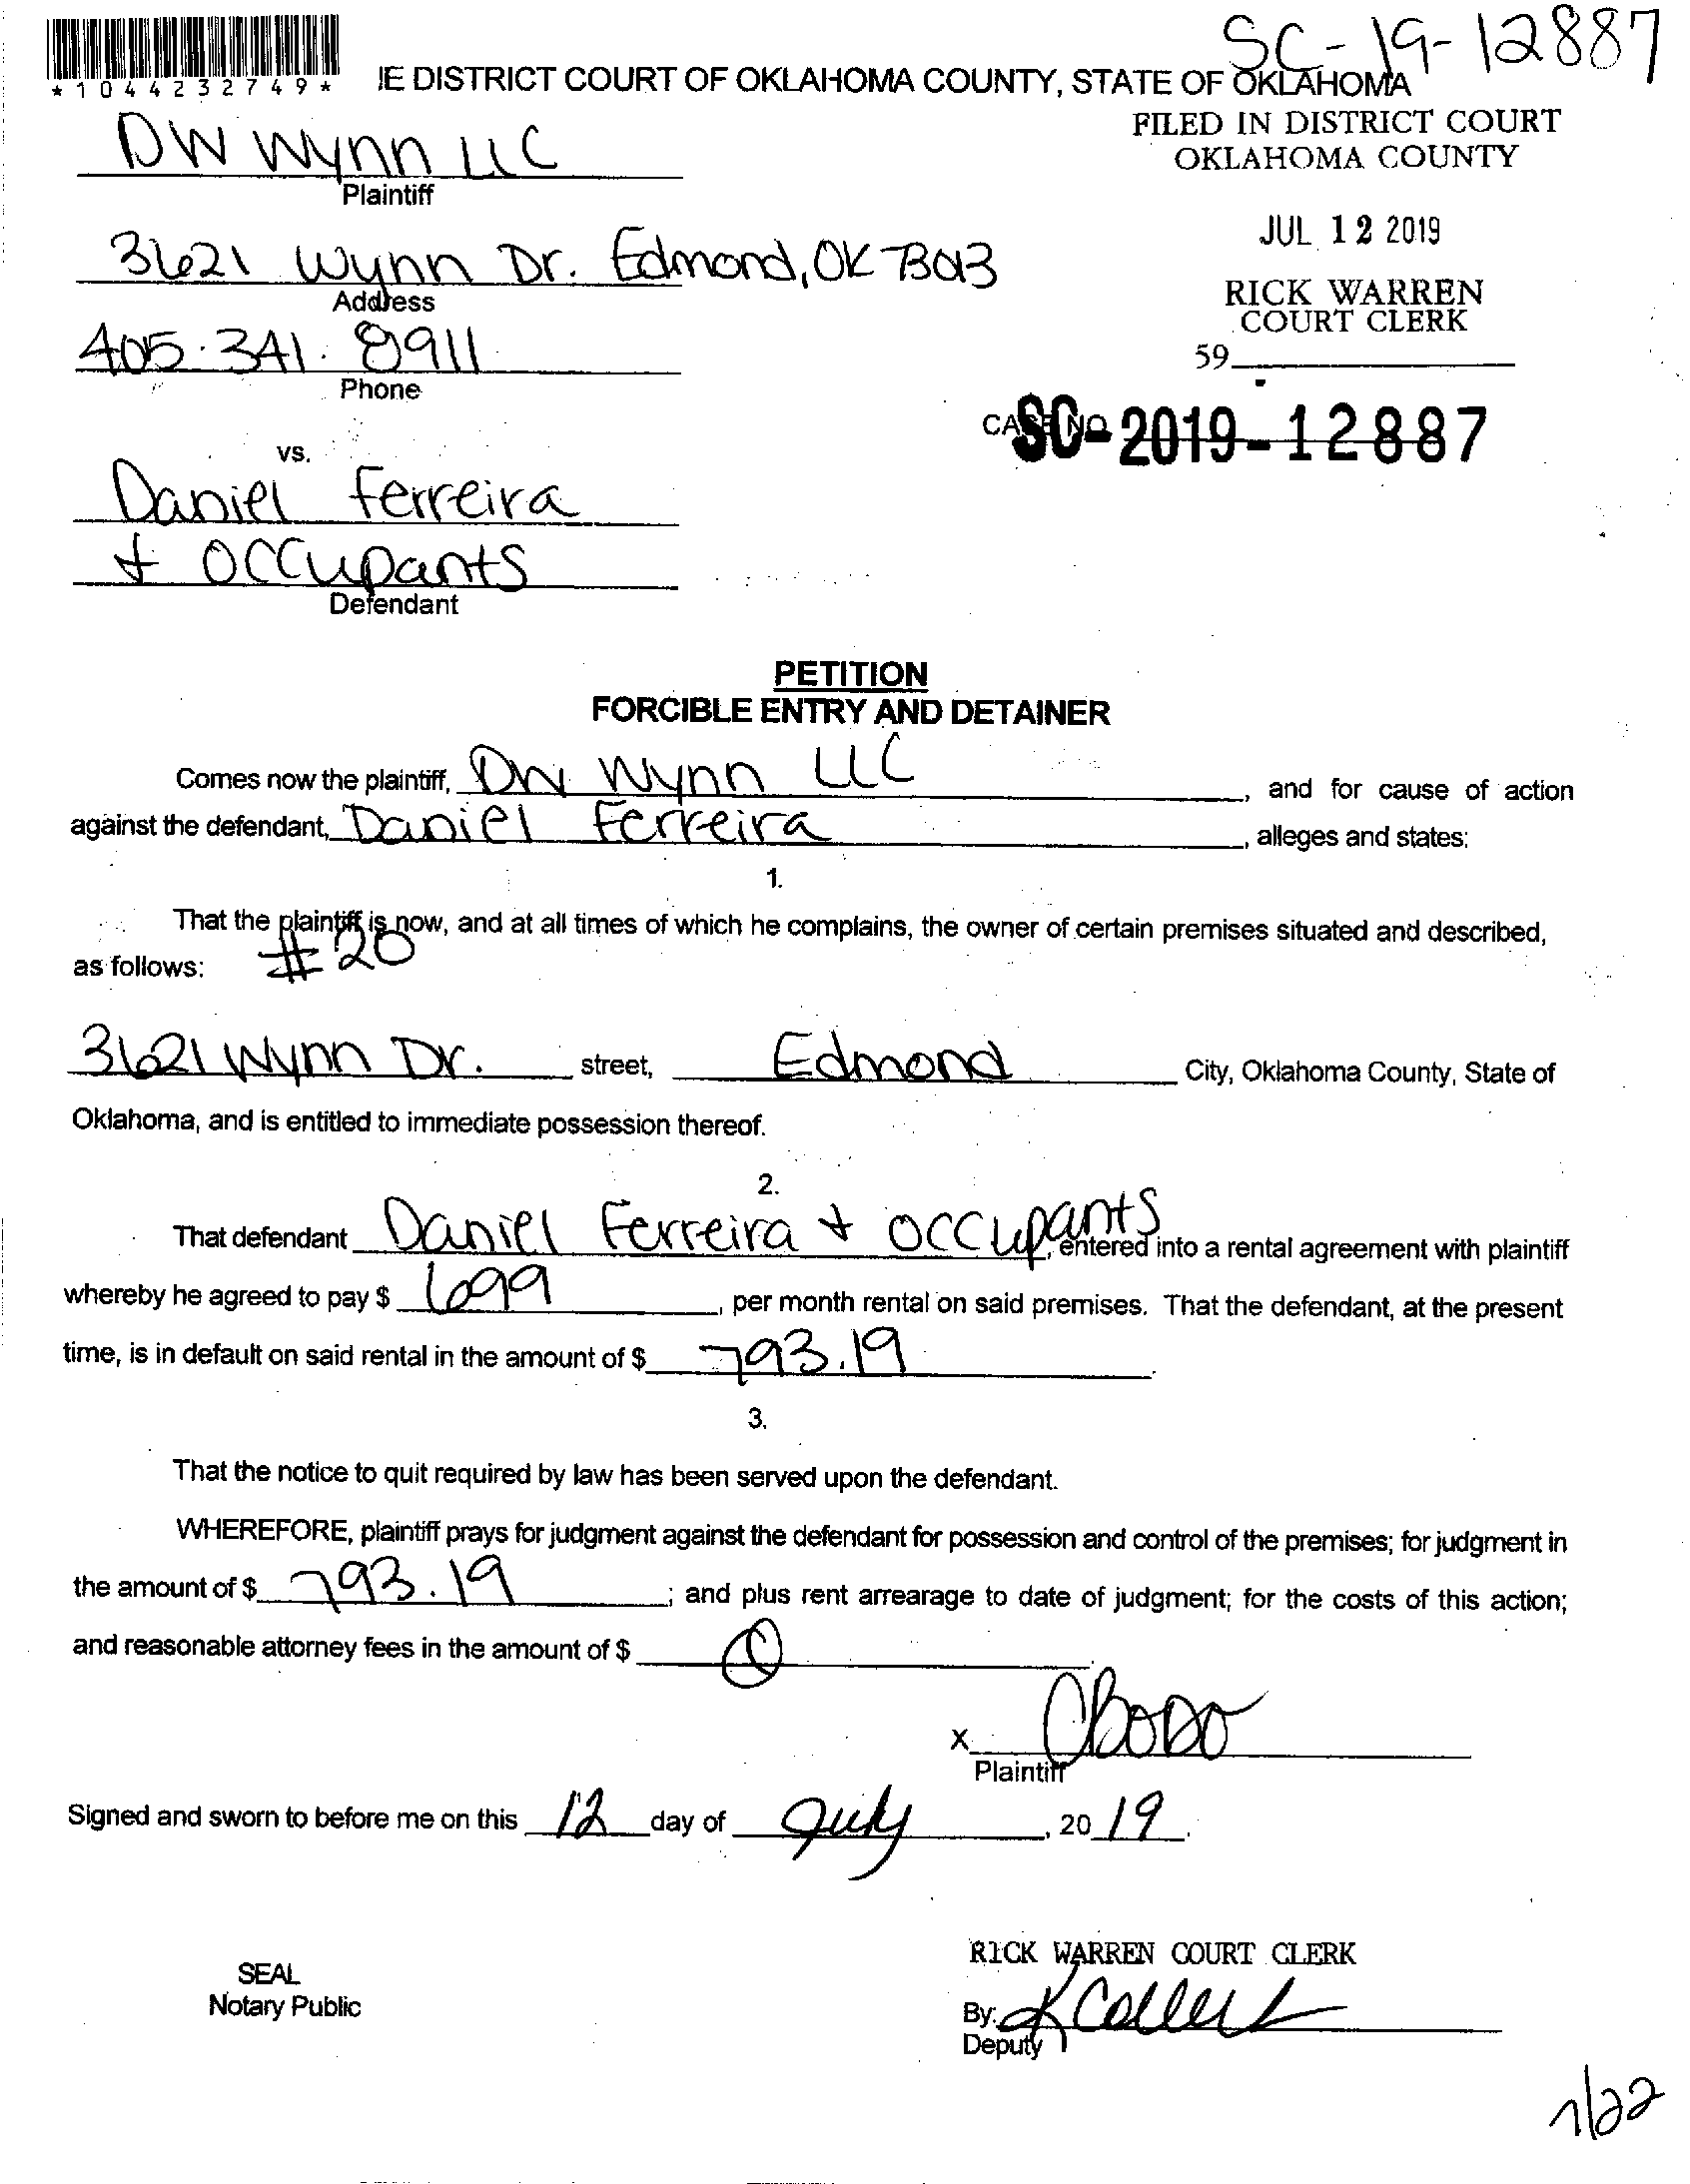 SC-19-12887
*1044232749*
IE DISTRICT COURT OF OKLAHOMA COUNTY, STATE OF OKLAHOMA
FILED IN DISTRICT COURT
OKLAHOMA COUNTY
DW Wynn LLC
Plaintiff
JUL 12 2019
3621 Wynn Dr. Edmond, OK 73013
Address
RICK WARREN
COURT CLERK
405.341.8911
Phone
59
CASE NO
SC-2019-12887
vs.
Daniel Ferreira
+ Occupants
Defendant
PETITION
FORCIBLE ENTRY AND DETAINER
Comes now the plaintiff, DW Wynn LLC, and for cause of action
against the defendant, Daniel Ferreira, alleges and states:
1.
That the plaintiff is now, and at all times of which he complains, the owner of certain premises situated and described,
as follows: #20
3621 Wynn Dr. street, Edmond City, Oklahoma County, State of
Oklahoma, and is entitled to immediate possession thereof.
2.
That defendant Daniel Ferreira + Occupants, entered into a rental agreement with plaintiff
whereby he agreed to pay $ 699, per month rental on said premises. That the defendant, at the present
time, is in default on said rental in the amount of $ 793.19.
3.
That the notice to quit required by law has been served upon the defendant.
WHEREFORE, plaintiff prays for judgment against the defendant for possession and control of the premises; for judgment in
the amount of $ 793.19; and plus rent arrearage to date of judgment; for the costs of this action;
and reasonable attorney fees in the amount of $
X
Plaintiff
Signed and sworn to before me on this 12 day of July, 2019.
RICK WARREN COURT CLERK
SEAL
Notary Public
By:
Deputy
7/22